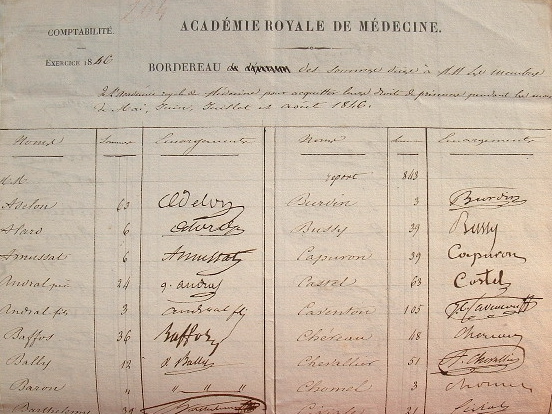 ACADÉMIE ROYALE DE MÉDECINE.
COMPTABILITÉ.
EXERCICE 1846
BORDEREAU des sommes dues à MM. les membres
de l'académie royale de Médecine pour acquitter leurs droits de présence pendant les mois
de Mai, Juin, Juillet et août 1846.
Noms Sommes Emargements Noms Sommes Emargements
MM. report 843
Adelon 63 Adelon Burdin 3 Burdin
6 Bussy 39 Bussy
Amussat 6 Amussat Capuron 39 Capuron
Andral père 24 g. andral Castel 63 Castel
Andral fils 3 andral fils Caventou 105 Caventou
Baffos 36 Baffos Chéreau 48
Bally 12 Bally Chevallier 51 Chevallier
Baron " " " " Chomel 3 Chomel
Barthélemy